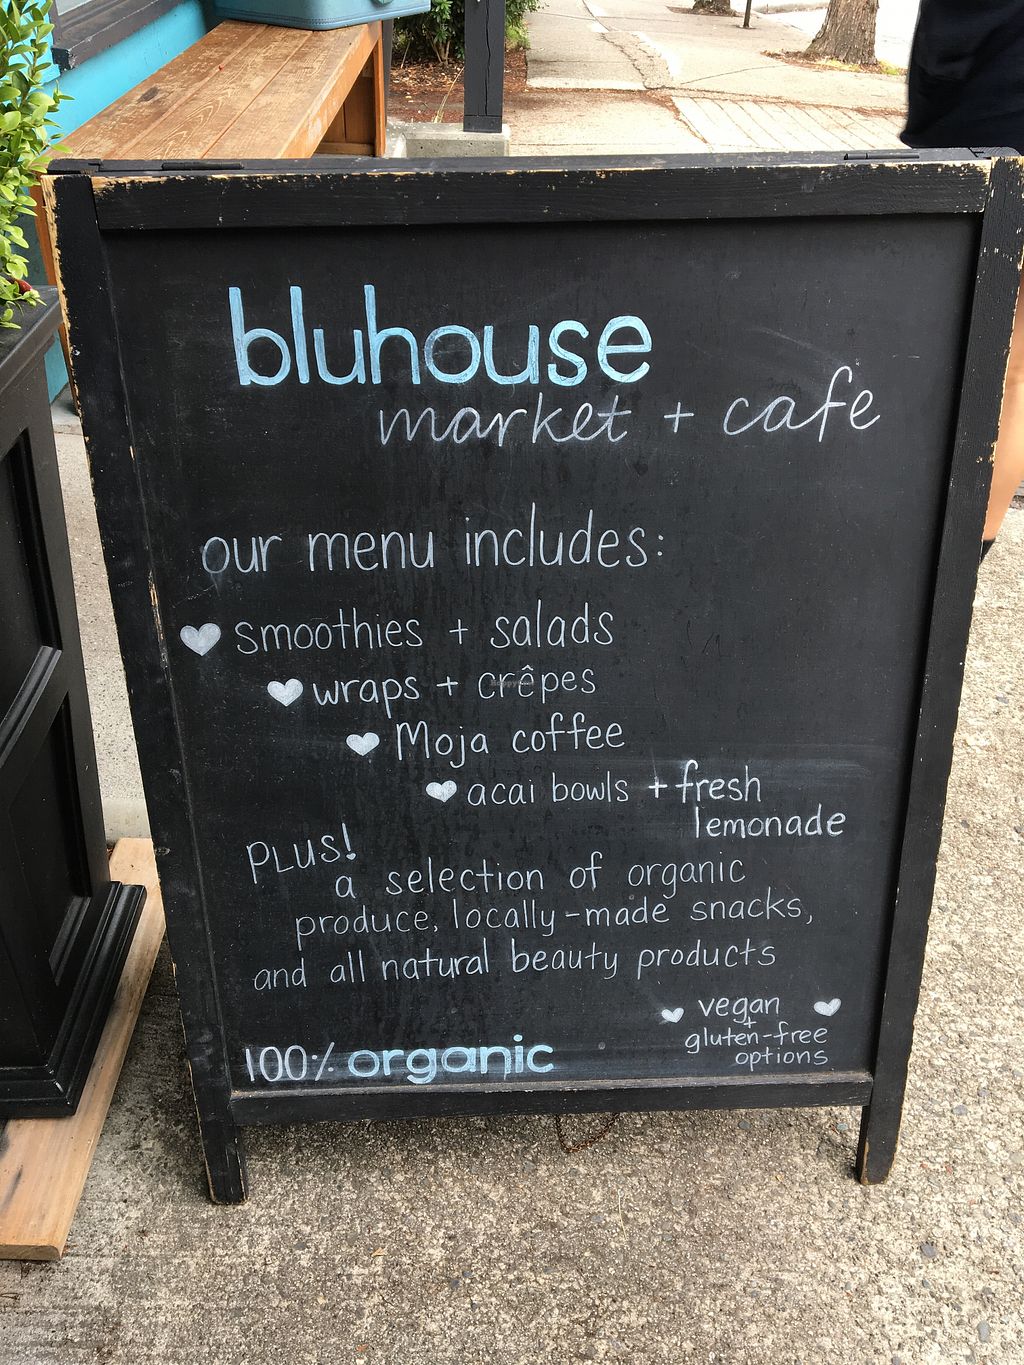 bluhouse
market + cafe
our menu includes:
smoothies + salads
wraps + crêpes
Moja coffee
acai bowls + fresh
lemonade
PLUS!
a selection of organic
produce, locally-made snacks,
and all natural beauty products
vegan
+
gluten-free
options
100% organic